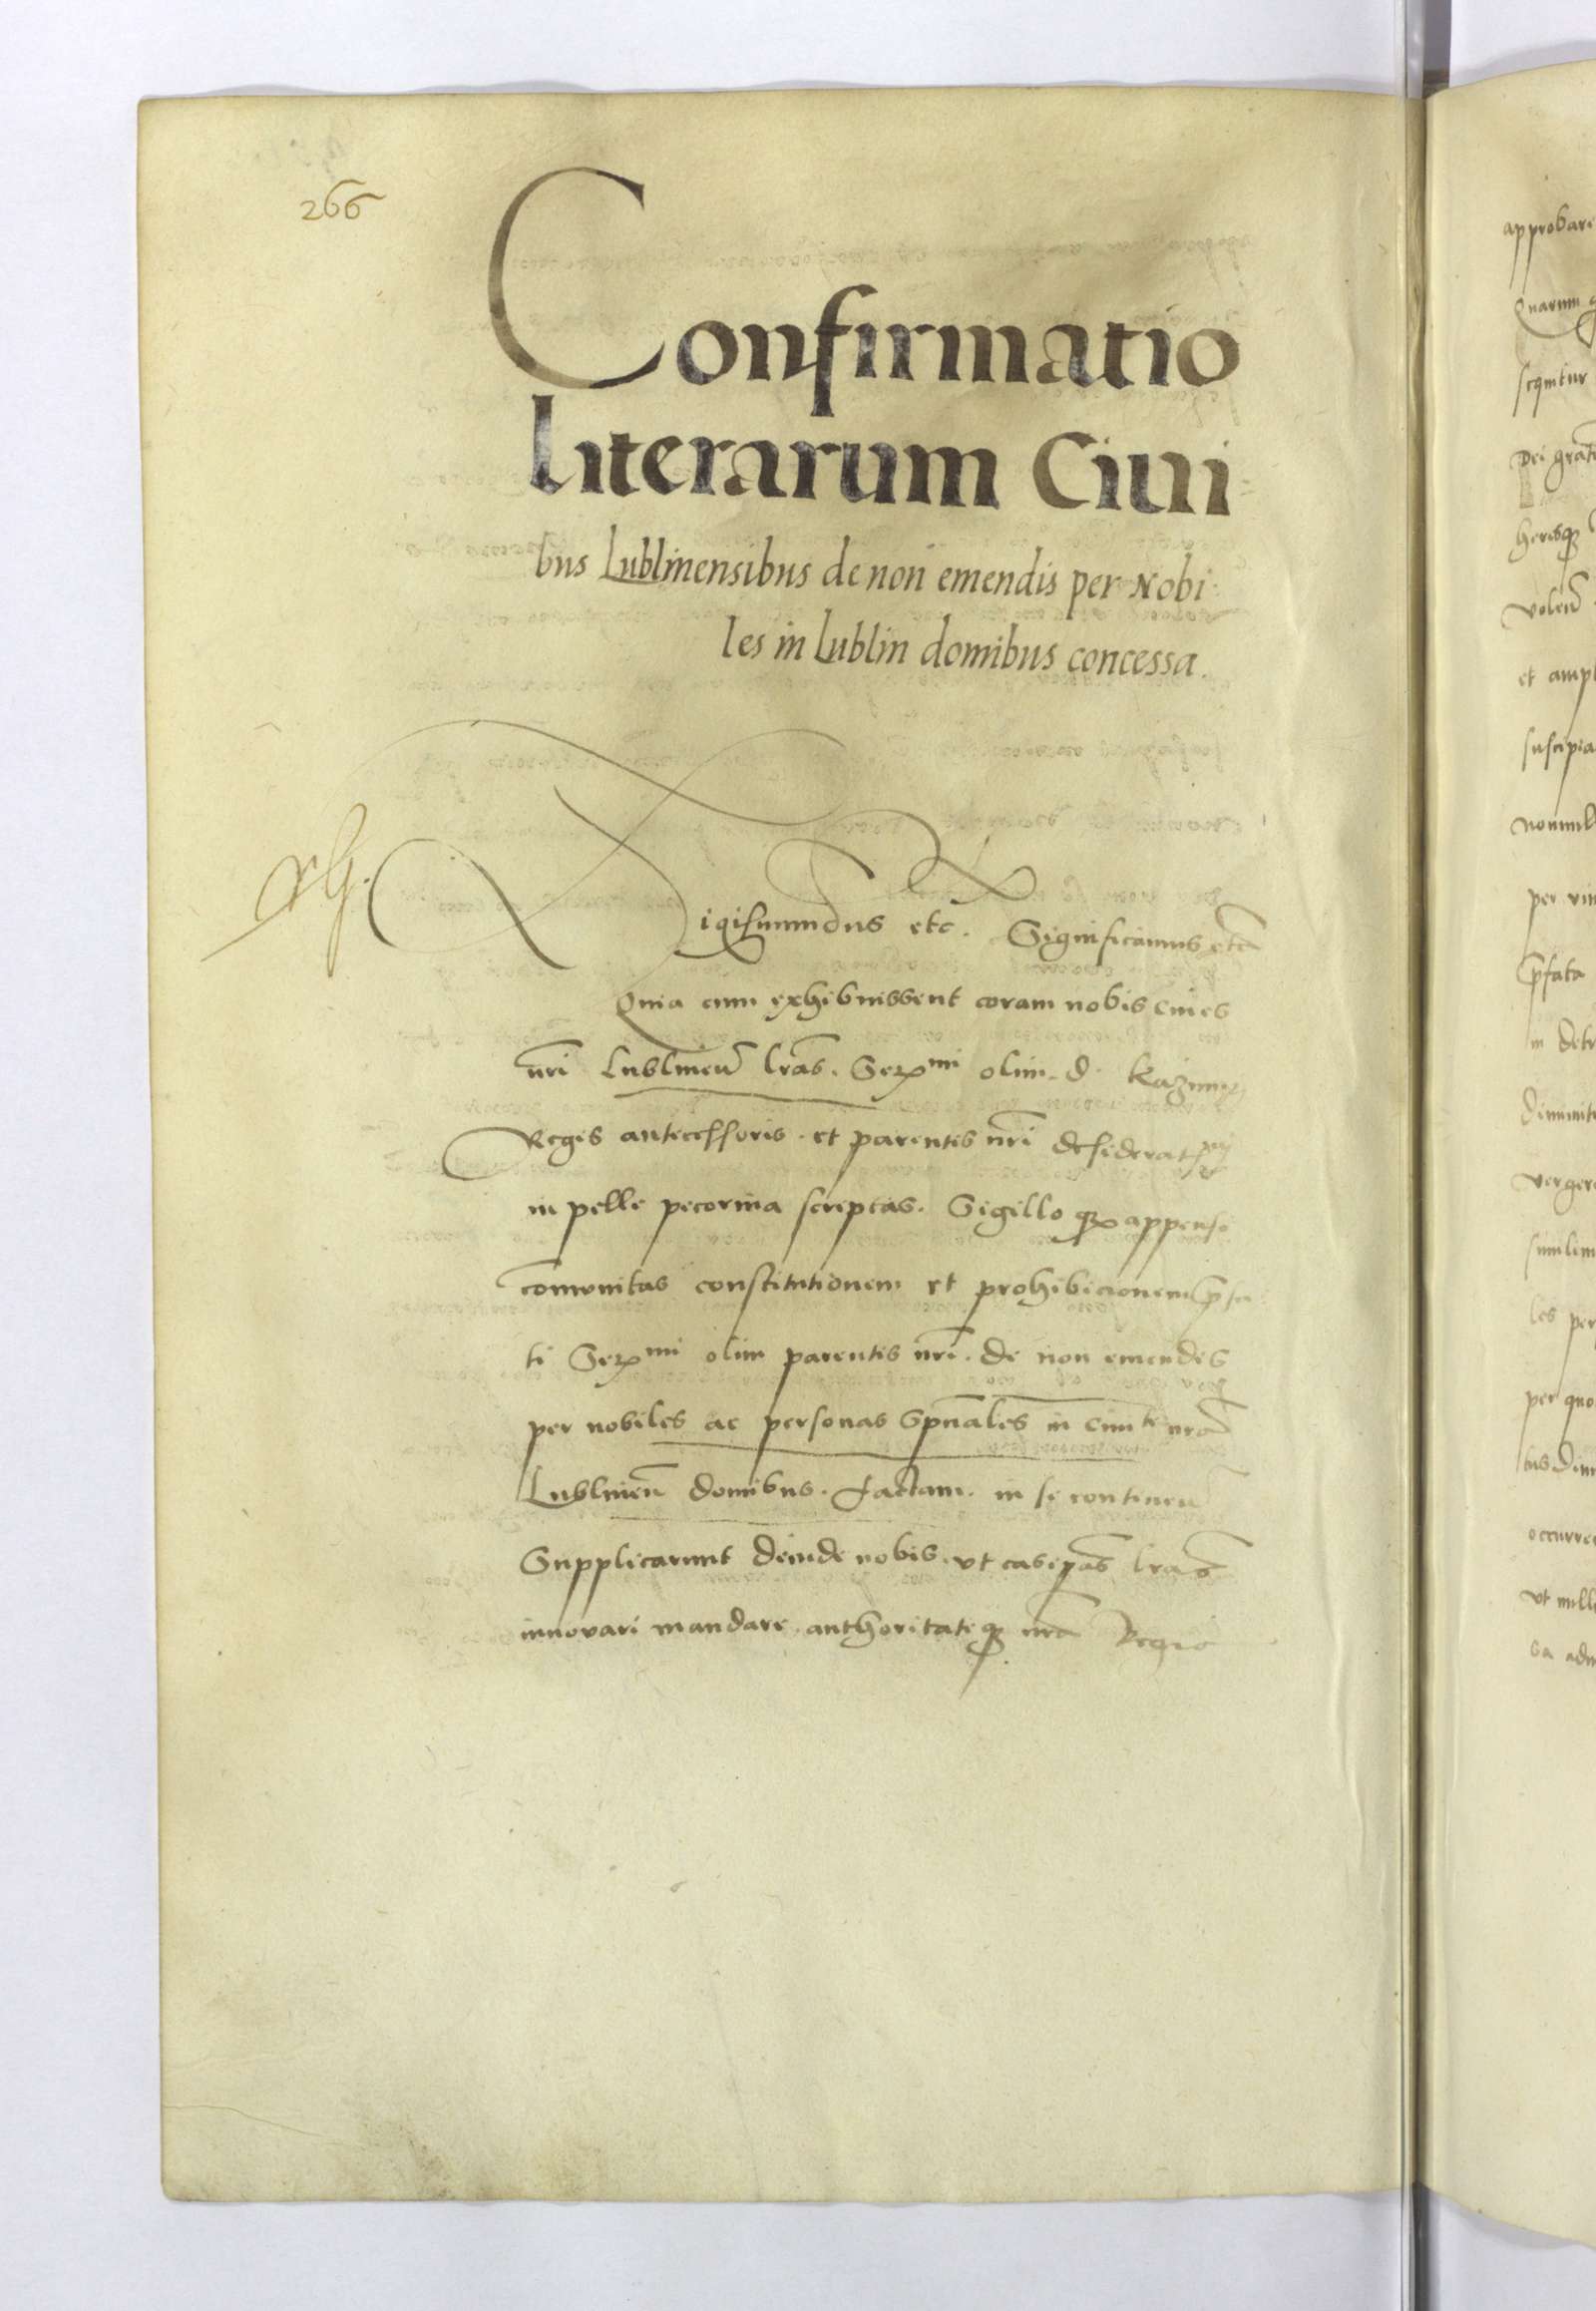 266
Confirmatio
literarum Ciui-
bus Lublinensibus de non emendis per Nobi-
les in Lublin domibus concessa.
Sigismundus etc. Significamus etc
Quia cum exhibuissent coram nobis ciues
nri Lublineñ lras. Serᵐⁱ olim. d. Kazimiri
Regis antecessoris. et parentis nri desideratᵐⁱ
in pelle pecorina scriptas. Sigilloqȝ appenso
comunitas constitutionem et prohibicionem prefa
ti Serᵐⁱ olim parentis nri. de non emendis
per nobiles ac personas Spuales in Ciuitᵗᵉ nra
Lublineñ domibus. factam. in se contineñ
Supplicarunt deinde nobis. vt easdem lras
innouari mandare. authoritateqȝ nra Regia
approbare
Quarum
sequitur
Dei gratia
heresqȝ
voleñ
et ampl
suscipia
nonnull
per vim
prefata
in detr
diminut
verger
similem
les per
per quo
tus dim
occurre
vt null
sa adm